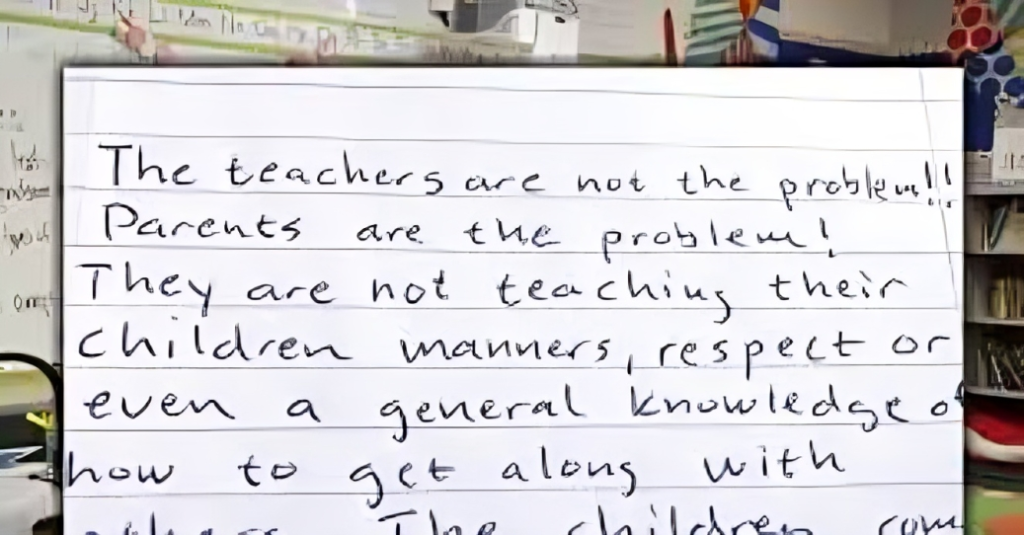 The teachers are not the problem!!!
Parents are the problem!
They are not teaching their
children manners, respect or
even a general knowledge of
how to get along with
The children